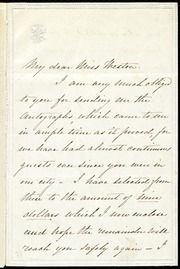 My dear Miss Weston
I am very much obliged
to you for sending me the
Autographs, which came to me
in ample time as it proved, for
we have had almost continuous
guests ever since you were in
our city - I have selected from
them to the amount of nine
dollars which I now enclose
and hope the remainder will
reach you safely again - I